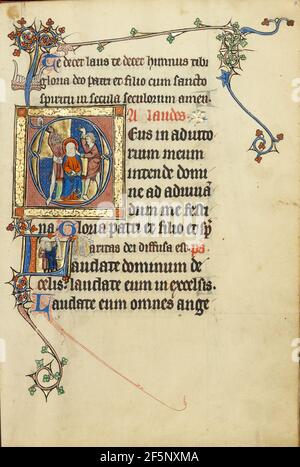 Te decet laus te decet himnus tibi
gloria deo patri et filio cum sancto
spiritu in secula seculorum amen.
A laudes.
Deus in adiuto
rium meum
intende domi
ne ad adiuuā
dum me festi
na Gloria patri et filio et sp̄
aritas dei diffusa est. ps
Laudate dominum de
celis: laudate eum in excelsis.
Laudate eum omnes ange
alamy
Image ID: 2F5NXMA
www.alamy.com